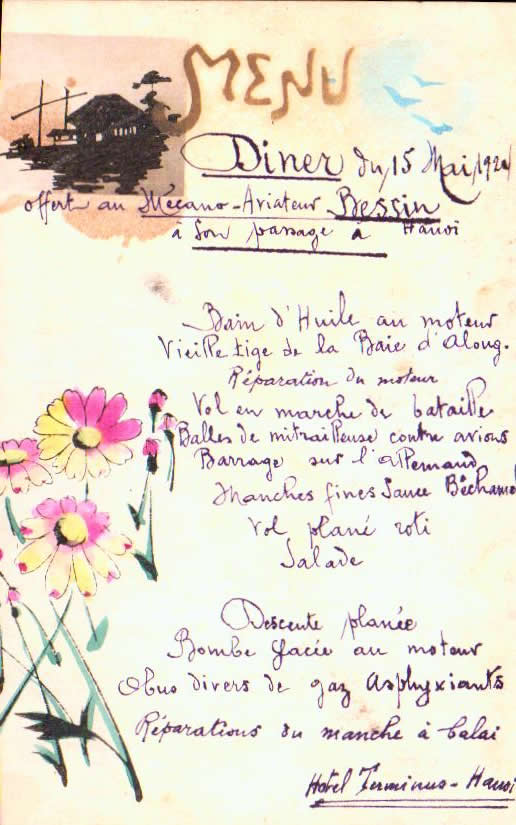 MENU
Diner du 15 Mai 192
offert au Mécano-Aviateur Bessin
à son passage à Hanoi
Bain d'Huile au moteur
Vieille tige de la Baie d'Along.
Réparation du moteur
Vol en marche de bataille
Balles de mitrailleuse contre avions
Barrage sur l'Allemand
Manches fines Sauce Béchamel
Vol plané roti
Salade
Descente planée
Bombe glacée au moteur
Obus divers de gaz Asphyxiants
Réparations du manche à balai
Hotel Terminus - Hanoi